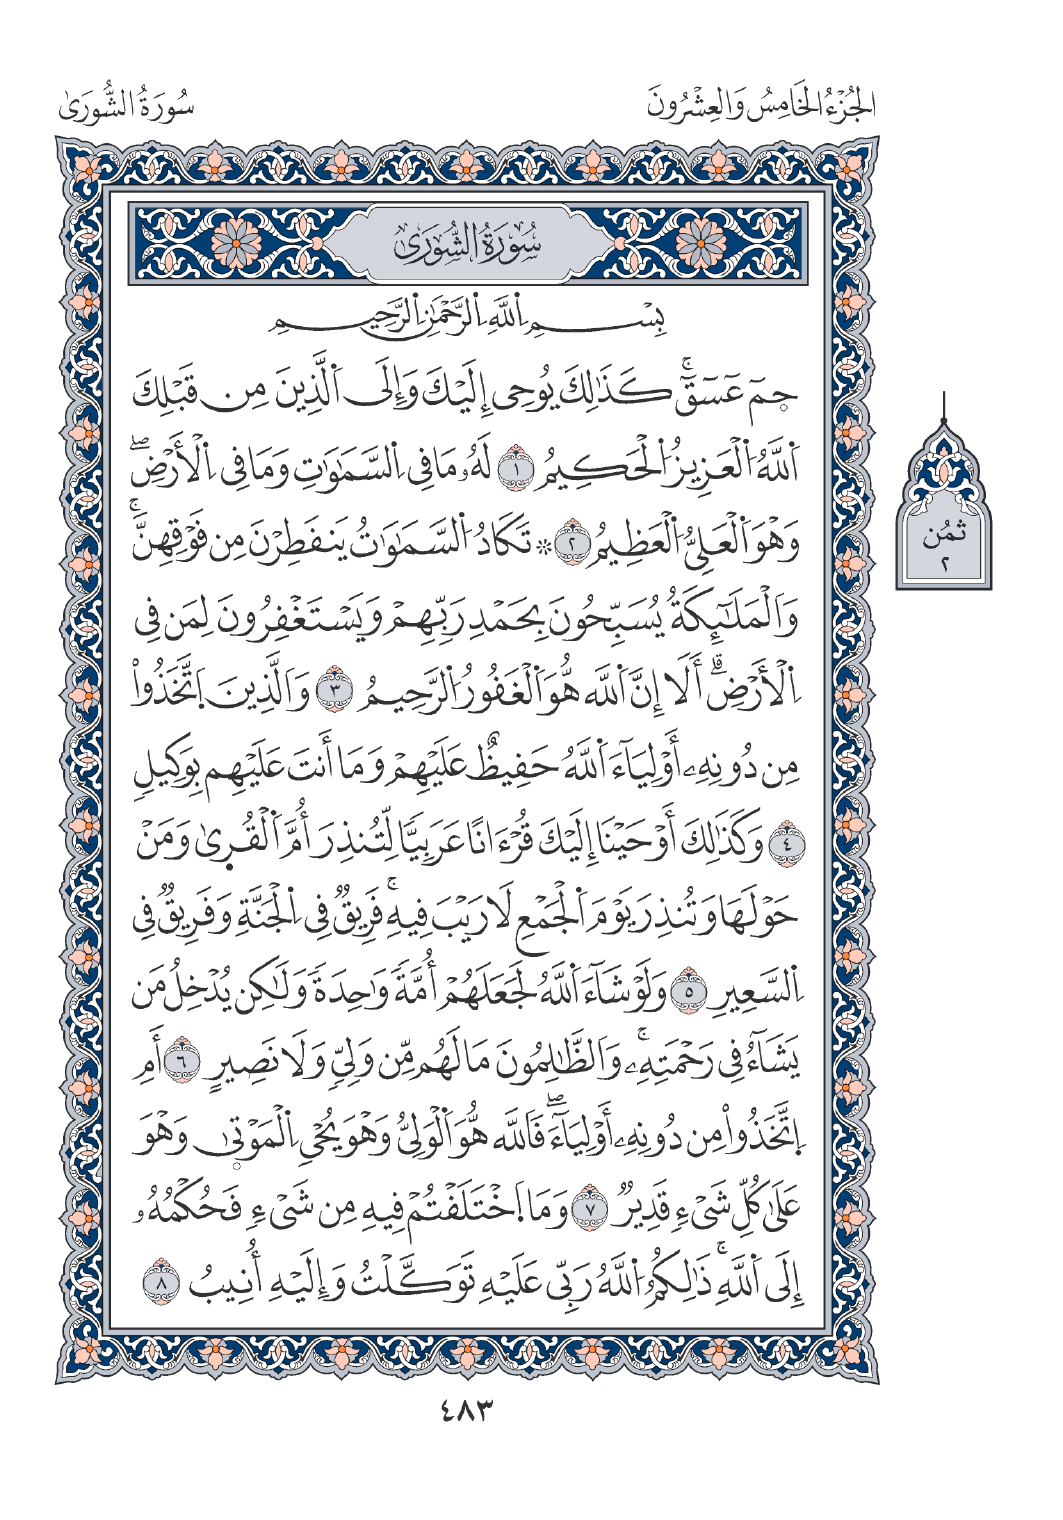 الجُزْءُ الخَامِسُ وَالعِشْرُونَ
سُورَةُ الشُّورَىٰ
سُورَةُ الشُّورَىٰ
بِسْمِ اِ۬للَّهِ اِ۬لرَّحْمَٰنِ اِ۬لرَّحِيمِ
حمٓ عٓسٓقٓۚ كَذَٰلِكَ يُوحِى إِلَيْكَ وَإِلَى اَ۬لَّذِينَ مِن قَبْلِكَ
اَ۬للَّهُ اُ۬لْعَزِيزُ اُ۬لْحَكِيمُ ١ لَهُۥ مَا فِى اِ۬لسَّمَٰوَٰتِ وَمَا فِى اِ۬لْأَرْضِۖ
وَهْوَ اَ۬لْعَلِىُّ اُ۬لْعَظِيمُ ٢ ۞ تَكَادُ اُ۬لسَّمَٰوَٰتُ يَنفَطِرْنَ مِن فَوْقِهِنَّۚ
وَالْمَلَٰٓئِكَةُ يُسَبِّحُونَ بِحَمْدِ رَبِّهِمْ وَيَسْتَغْفِرُونَ لِمَن فِى
اِ۬لْأَرْضِۗ أَلَا إِنَّ اَ۬للَّه هُّوَ اَ۬لْغَفُورُ اُ۬لرَّحِيمُ ٣ وَالَّذِينَ اَ۪تَّخَذُواْ
مِن دُونِهِۦ أَوْلِيَآءَ اَ۬للَّهُ حَفِيظٌ عَلَيْهِمْ وَمَا أَنتَ عَلَيْهِم بِوَكِيلٖ
٤ وَكَذَٰلِكَ أَوْحَيْنَا إِلَيْكَ قُرْءَانًا عَرَبِيّٗا لِّتُنذِرَ أُمَّ اَ۬لْقُرٜىٰ وَمَنْ
حَوْلَهَا وَتُنذِرَ يَوْمَ اَ۬لْجَمْعِ لَا رَيْبَ فِيهِۚ فَرِيقٞ فِى اِ۬لْجَنَّةِ وَفَرِيقٞ فِى
اِ۬لسَّعِيرِ ٥ وَلَوْ شَآءَ اَ۬للَّهُ لَجَعَلَهُمْ أُمَّةٗ وَٰحِدَةٗ وَلَٰكِن يُدْخِلُ مَن
يَشَآءُ فِى رَحْمَتِهِۦۚ وَالظَّٰلِمُونَ مَا لَهُم مِّن وَلِىّٖ وَلَا نَصِيرٍ ٦ أَمِ
اِ۪تَّخَذُواْ مِن دُونِهِۦ أَوْلِيَآءَۖ فَاللَّه هُّوَ اَ۬لْوَلِىُّ وَهْوَ يُحْىِ اِ۬لْمَوْتٜىٰ وَهْوَ
عَلَىٰ كُلِّ شَىْءٖ قَدِيرٞ ٧ وَمَا اَ۪خْتَلَفْتُمْ فِيهِ مِن شَىْءٖ فَحُكْمُهُۥ
إِلَى اَ۬للَّهِۚ ذَٰلِكُمُ اُ۬للَّهُ رَبِّى عَلَيْهِ تَوَكَّلْتُ وَإِلَيْهِ أُنِيبُ ٨
ثمُن
٢
٤٨٣